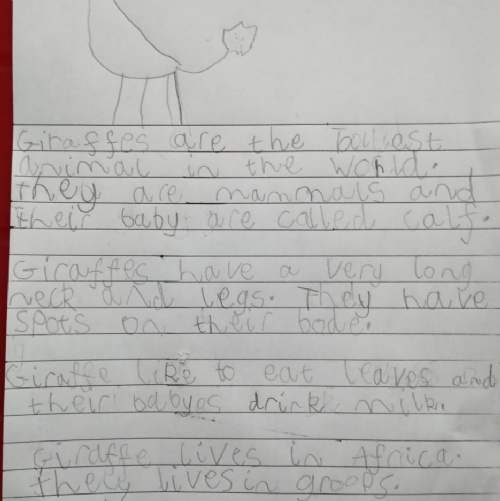 Giraffes are the tallast
animal in the world.
they are mammals and
their baby are called calf.
Giraffes have a very long
neck and legs. They have
spots on their bode.
Giraffe like to eat leaves and
their babyes drink milk.
Giraffe lives in Africa.
they lives in groops.